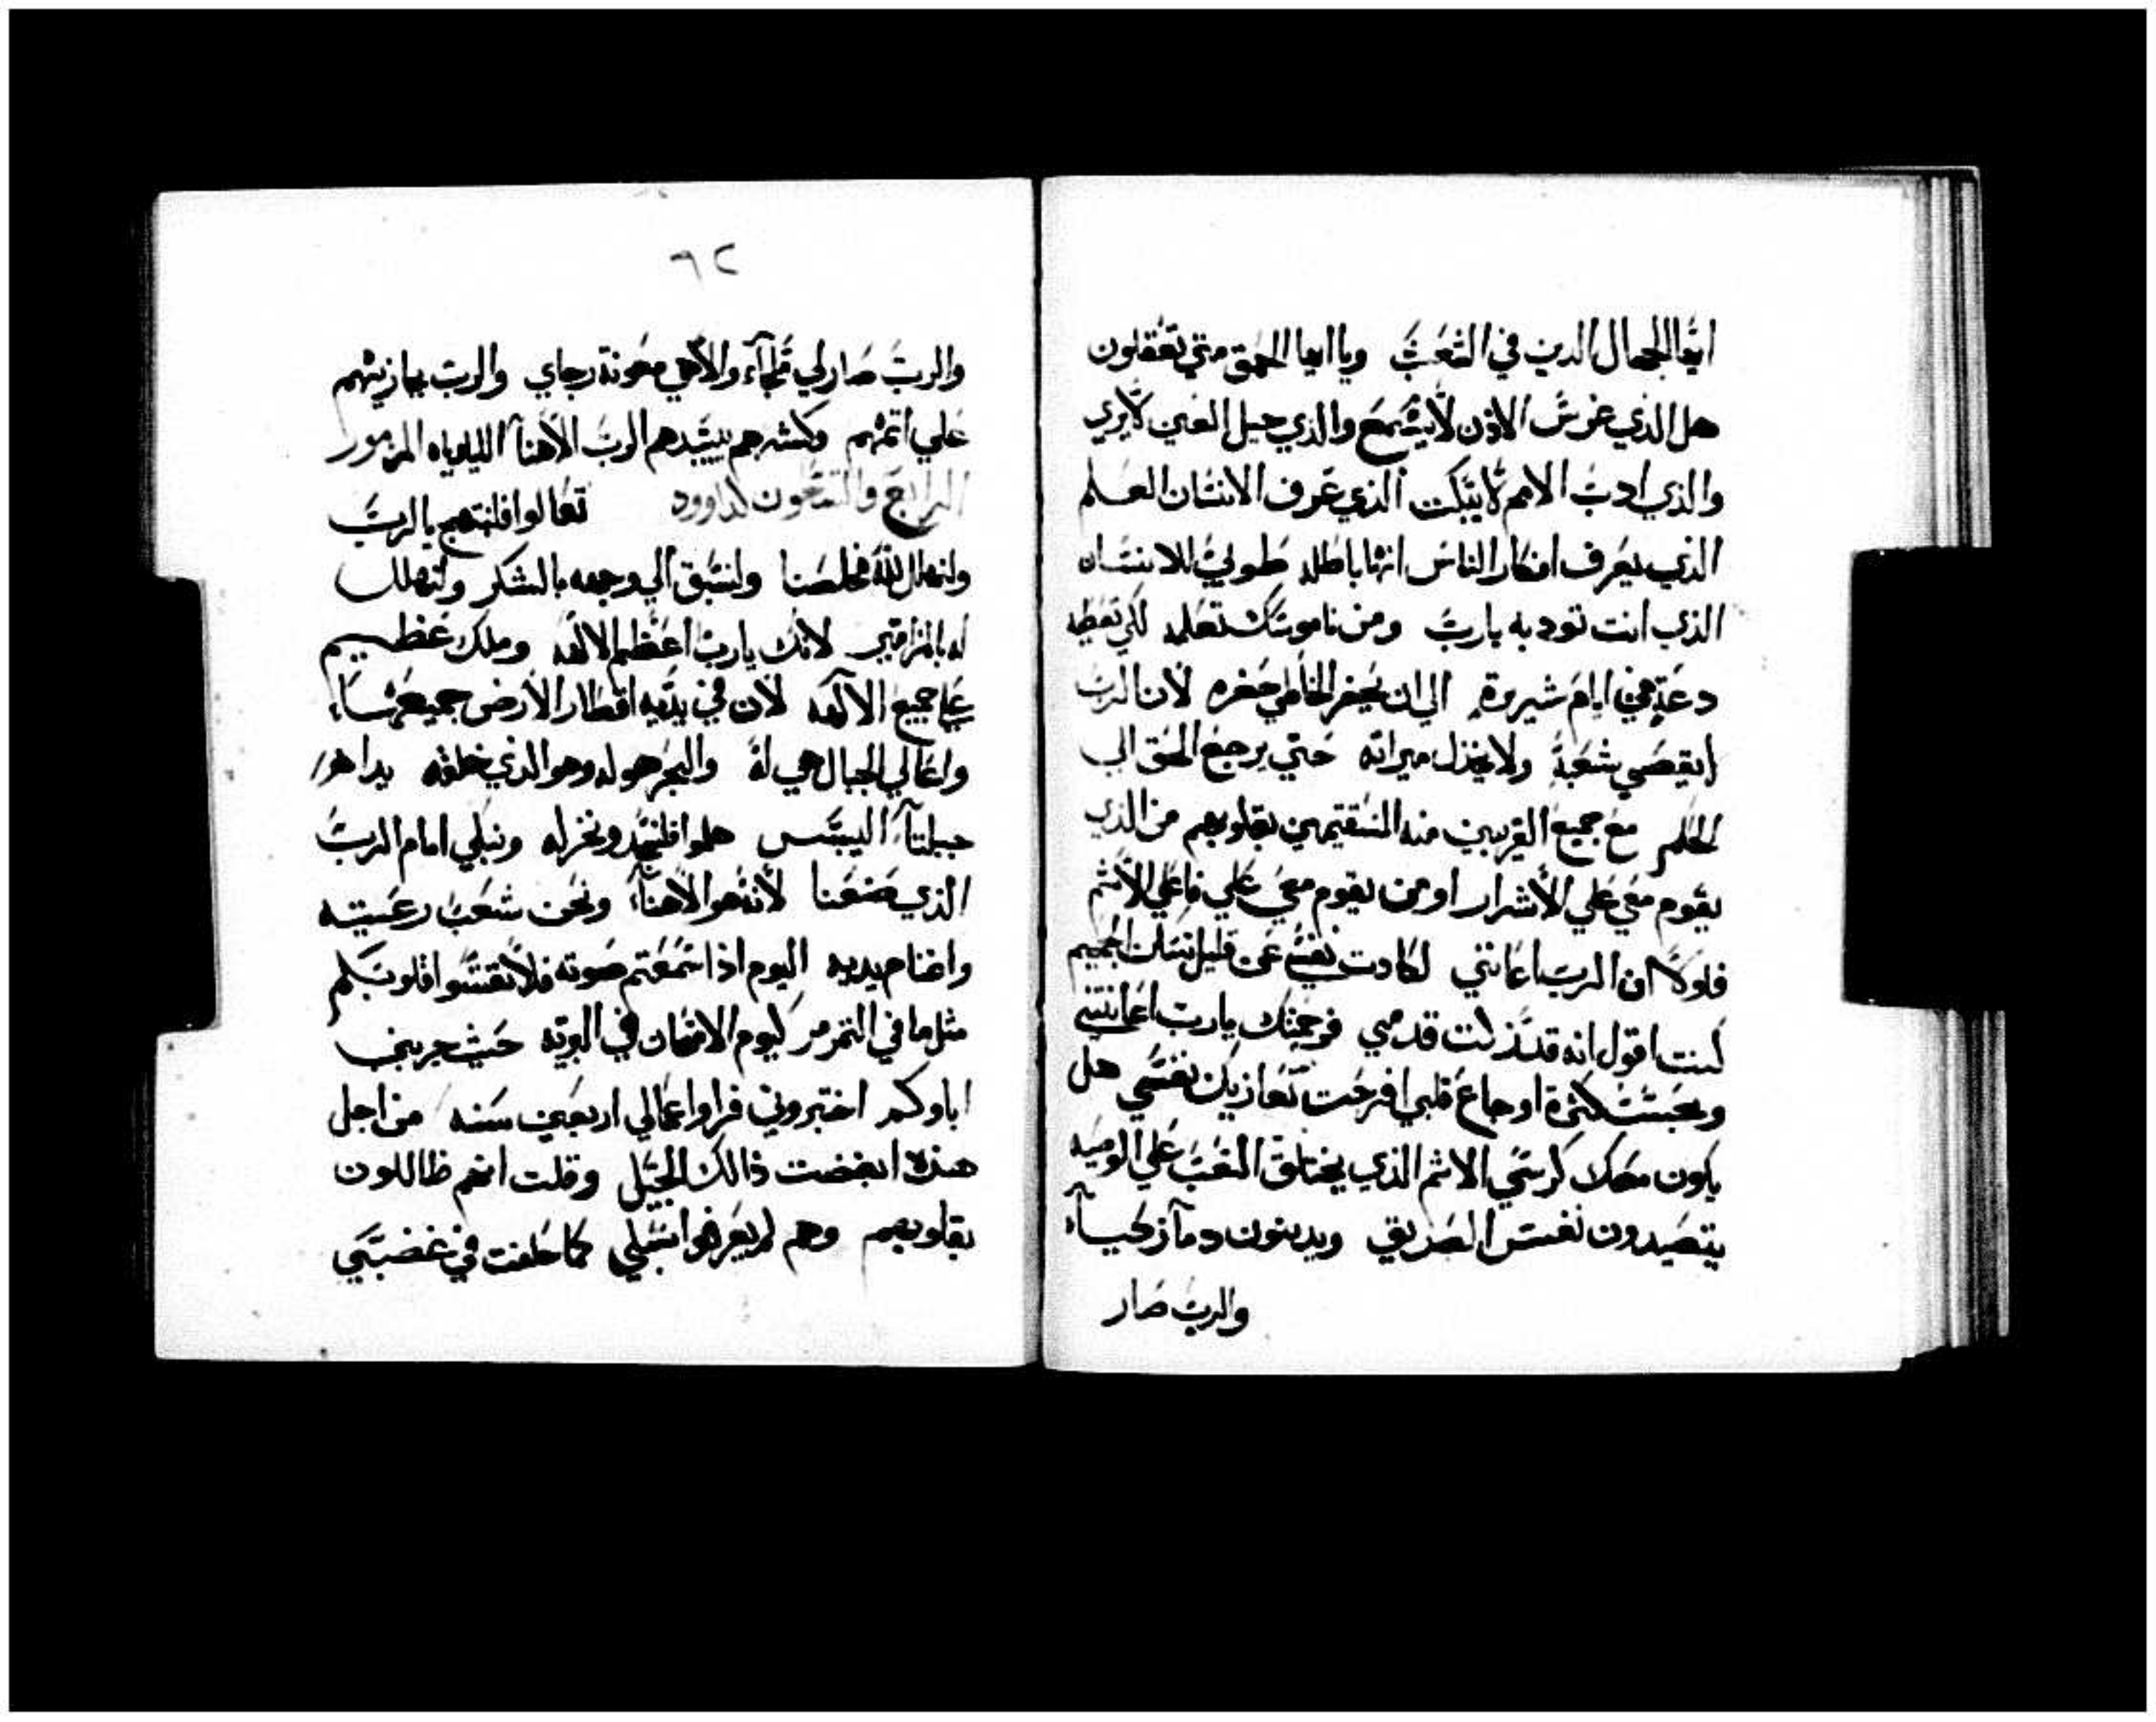 ايها الجهال الدين في الشعب ويا ايها الحمق متي تعقلون
هل الذي غرس الاذن لا يسمع والذي جبل العين لا يري
والذي ادب الامم لا يبكت الذي عرف الانسان العلم
الذي يعرف افكار الناس انها باطله طوبي للانسان
الذي انت تودبه يارب ومن ناموسك تعلمه لكي تعطيه
دعة في ايام شيرة الي ان يحفر للخاطي حفره لان الرب
لا يقصي شعبه ولا يخذل ميراثه حتي يرجع الحق الي
الحكم مع جميع القريبين منه المستقيمين بقلوبهم من الذي
يقوم معي علي الاشرار او من يقوم معي علي فاعلي الاثم
فلولا ان الرب اعانني لكادت نفسي عن قليل تسكن الجحيم
كنت اقول انه قد زلت قدمي فرحمتك يارب اعانتني
وبحسب كثرة اوجاع قلبي افرحت تعازيك نفسي هل
يكون معك كرسي الاثم الذي يختلق التعب علي الوصيه
يتصيدون نفس الصديق ويدينون دمآ زكيآ
والرب صار
٦٢
والرب صار لي ملجاء والاهي معونة رجاي والرب يجازيهم
علي اثمهم وكشرهم يبيدهم الرب الاهنا الليلوياه المزمور
الرابع والتسعون لداوود تعالوا فلنبتهج بالرب
ولنهلل لله مخلصنا ولنسبق الي وجهه بالشكر ولنهلل
له بالمزامير لانك يارب اعظم الالهه وملك عظيم
علي جميع الالهه لان في يديه اقطار الارض جميعها
واعالي الجبال هي له والبحر هو له وهو الذي خلقه يداه
جبلتآ اليبس هلموا فلنسجد ونخر له ونبكي امام الرب
الذي صنعنا لانه هو الاهنا ونحن شعب رعيته
واغنام يديه اليوم اذا سمعتم صوته فلا تقسوا قلوبكم
مثل ما في التمرمر كيوم الامتحان في البريه حيث جربني
اباوكم اختبروني فراوا اعمالي اربعين سنه من اجل
هذه ابغضت ذالك الجيل وقلت انهم ظاللون
بقلوبهم وهم لم يعرفوا سبلي كما حلفت في غضبي